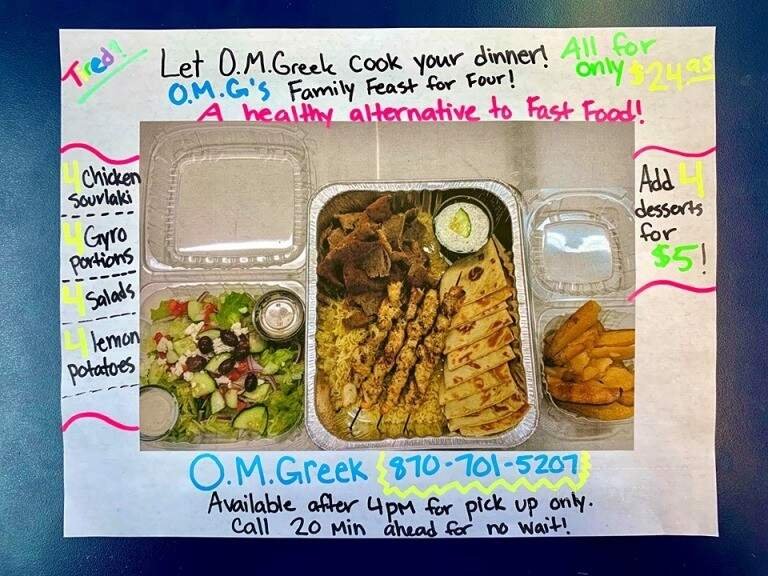 Tred!
Let O.M.Greek cook your dinner!
O.M.G's Family Feast for Four!
A healthy alternative to Fast Food!
All for
only $24.95
4 Chicken
Souvlaki
4 Gyro
Portions
4 Salads
4 lemon
potatoes
Add 4
desserts
for
$5!
O.M.Greek 870-701-5207
Available after 4pm for pick up only.
Call 20 Min ahead for no wait!